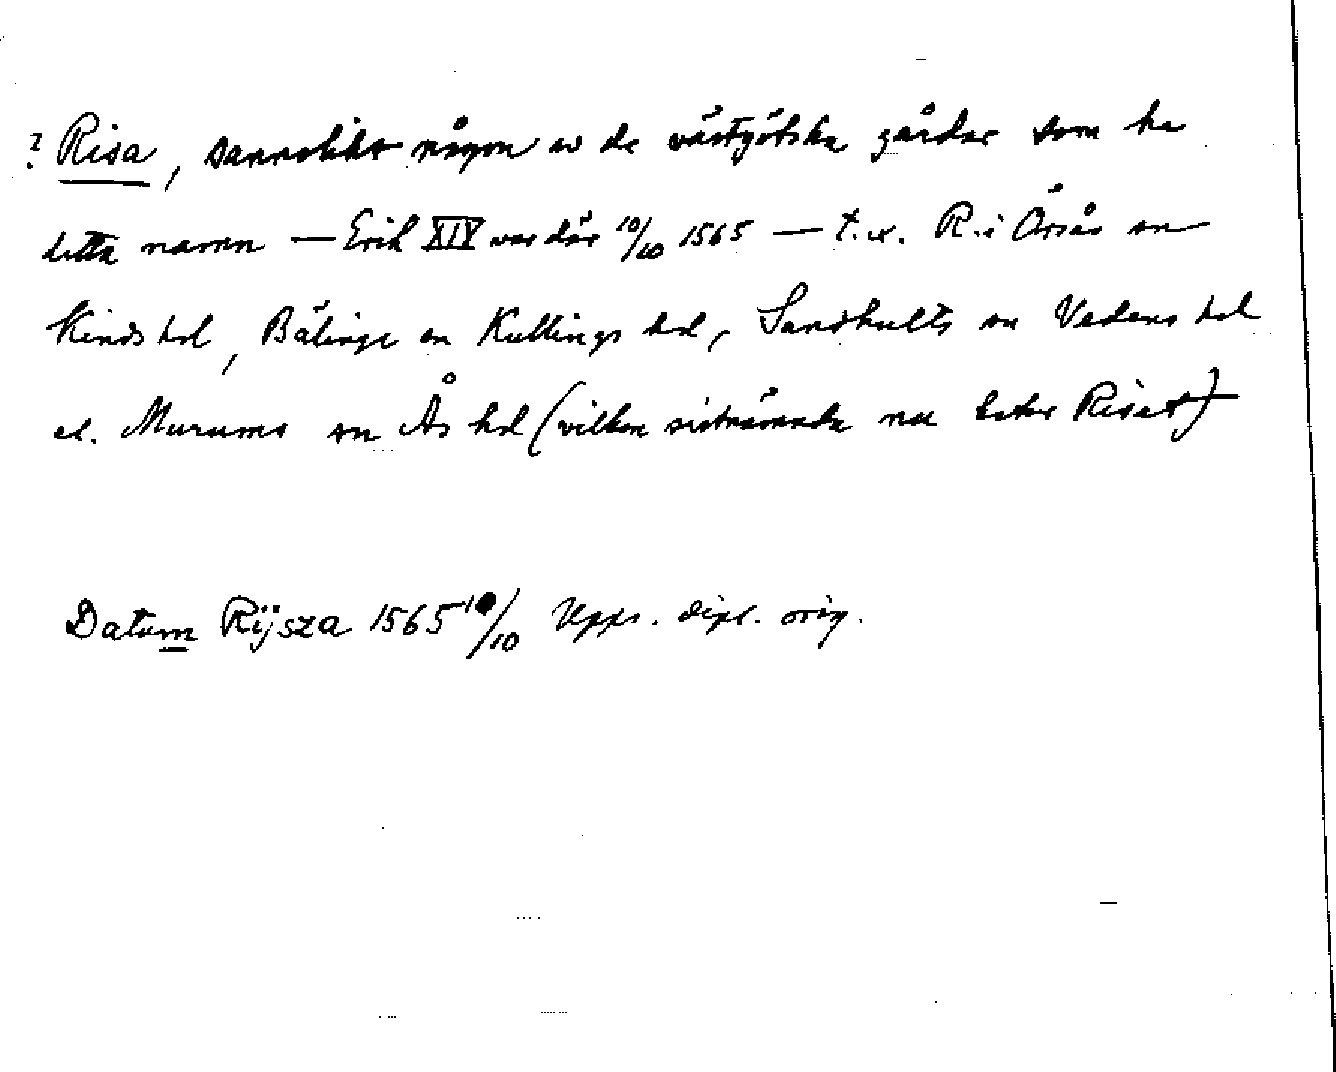 ? Risa, sannolikt någon av de västgötska gårdar som ha
detta namn — Erik XIV var där 10/10 1565 — t.ex. R. i Örsås sn
Kinds hd, Bälinge sn Kullings hd, Sandhults sn Vedens hd
el. Murums sn Ås hd (vilken sistnämnda nu heter Riset)
Datum Rijsza 1565 10/10 Upps. dipl. orig.